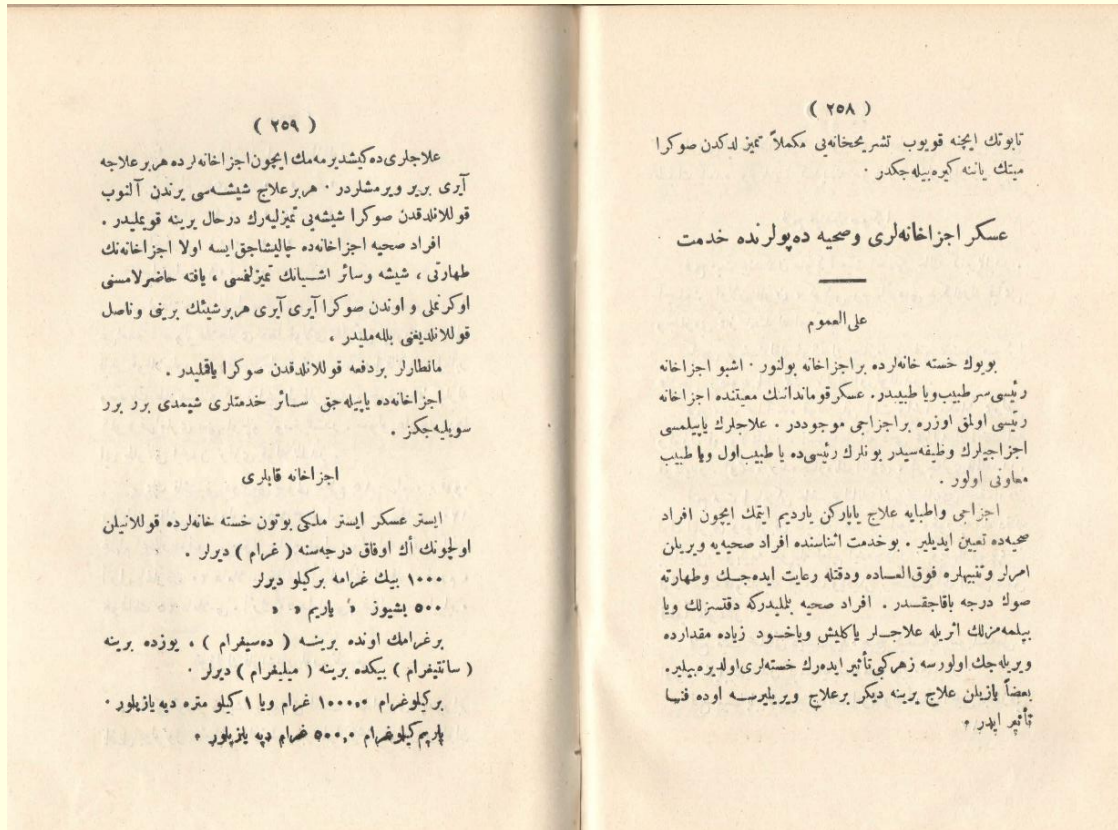 ( ٢٥٨ )
تابوتك ایچنه قویوب تشریحخانه‌یی مكملاً تمیزلدكدن صوكرا
میتك یاننه كیره‌بیله‌جكدر ٠
عسكر اجزاخانه‌لری وصحیه ده‌پولرنده خدمت
علی‌العموم
بویوك خسته خانه‌لرده براجزاخانه بولنور ٠ اشبو اجزاخانه
رئیسی سرطبیب ویا طبیبدر . عسكر قوماندانك معیتنده اجزاخانه
رئیسی اولمق اوزره براجزاجی موجوددر . علاجلرك یاپیلمسی
اجزاجیلرك وظیفه‌سیدر بونلرك رئیسی‌ده یا طبیب‌اول ویا طبیب
معاونی اولور .
اجزاجی واطبایه علاج یاپاركن یاردیم ایتمك ایچون افراد
صحیه‌ده تعیین ایدیلیر . بوخدمت اثناسنده افراد صحیه‌یه ویریلن
امرلر وتنبیهلره فوق‌العاده ودقتله رعایت ایده‌جك وطهارته
صوك درجه باقاجقدر . افراد صحیه بلملیدركه دقتسزلك ویا
بیلمه‌مزلك اثریله علاجلر یاكلیش ویاخود زیاده مقدارده
ویریله‌جك اولورسه زهركبی تأثیر ایده‌رك خسته‌لری اولدیره‌بیلیر.
بعضاً یازیلان علاج یرینه دیكر برعلاج ویریلیرسه اوده فنا
تأثیر ایدر .
( ٢٥٩ )
علاجلری ده‌كیشدیرمه‌مك ایچون اجزاخانه‌لرده هربرعلاجه
آیری بریر ویرمشلردر ٠ هربرعلاج شیشه‌سی یرندن آلنوب
قوللانلدقدن صوكرا شیشه‌یی تمیزلیه‌رك درحال یرینه قویملیدر .
افراد صحیه اجزاخانه‌ده چالیشاجق‌ایسه اولا اجزاخانه‌نك
طهارتی ، شیشه وسائر اشیانك تمیزلنمسی ، یافته حاضرلامسنی
اوكرنملی و اوندن صوكرا آیری آیری هربرشیئك یرینی وناصل
قوللانلدیغنی بیله‌ملیدر .
مانطارلر بردفعه قوللانلدقدن صوكرا یاقملیدر .
اجزاخانه‌ده یاپیله‌جق سائر خدمتلری شیمدی برر برر
سویلیه‌جكز .
اجزاخانه قابلری
ایستر عسكر ایستر ملكی بوتون خسته خانه‌لرده قوللانیلن
اولچونك اڭ اوفاق درجه‌سنه ( غرام ) دیرلر .
١٠٠٠ بیك غرامه بركیلو دیرلر
٥٠٠ بشیوز » یاریم » »
برغرامك اونده برینه ( ده‌سیغرام ) ، یوزده برینه
( سانتیغرام ) بیكده برینه ( میلیغرام ) دیرلر ٠
بركیلوغرام ١٠٠٠,٠ غرام ویا ١ كیلو متره دیه یازیلور ٠
یاریم كیلوغرام ٥٠٠,٠ غرام دیه یازیلور .